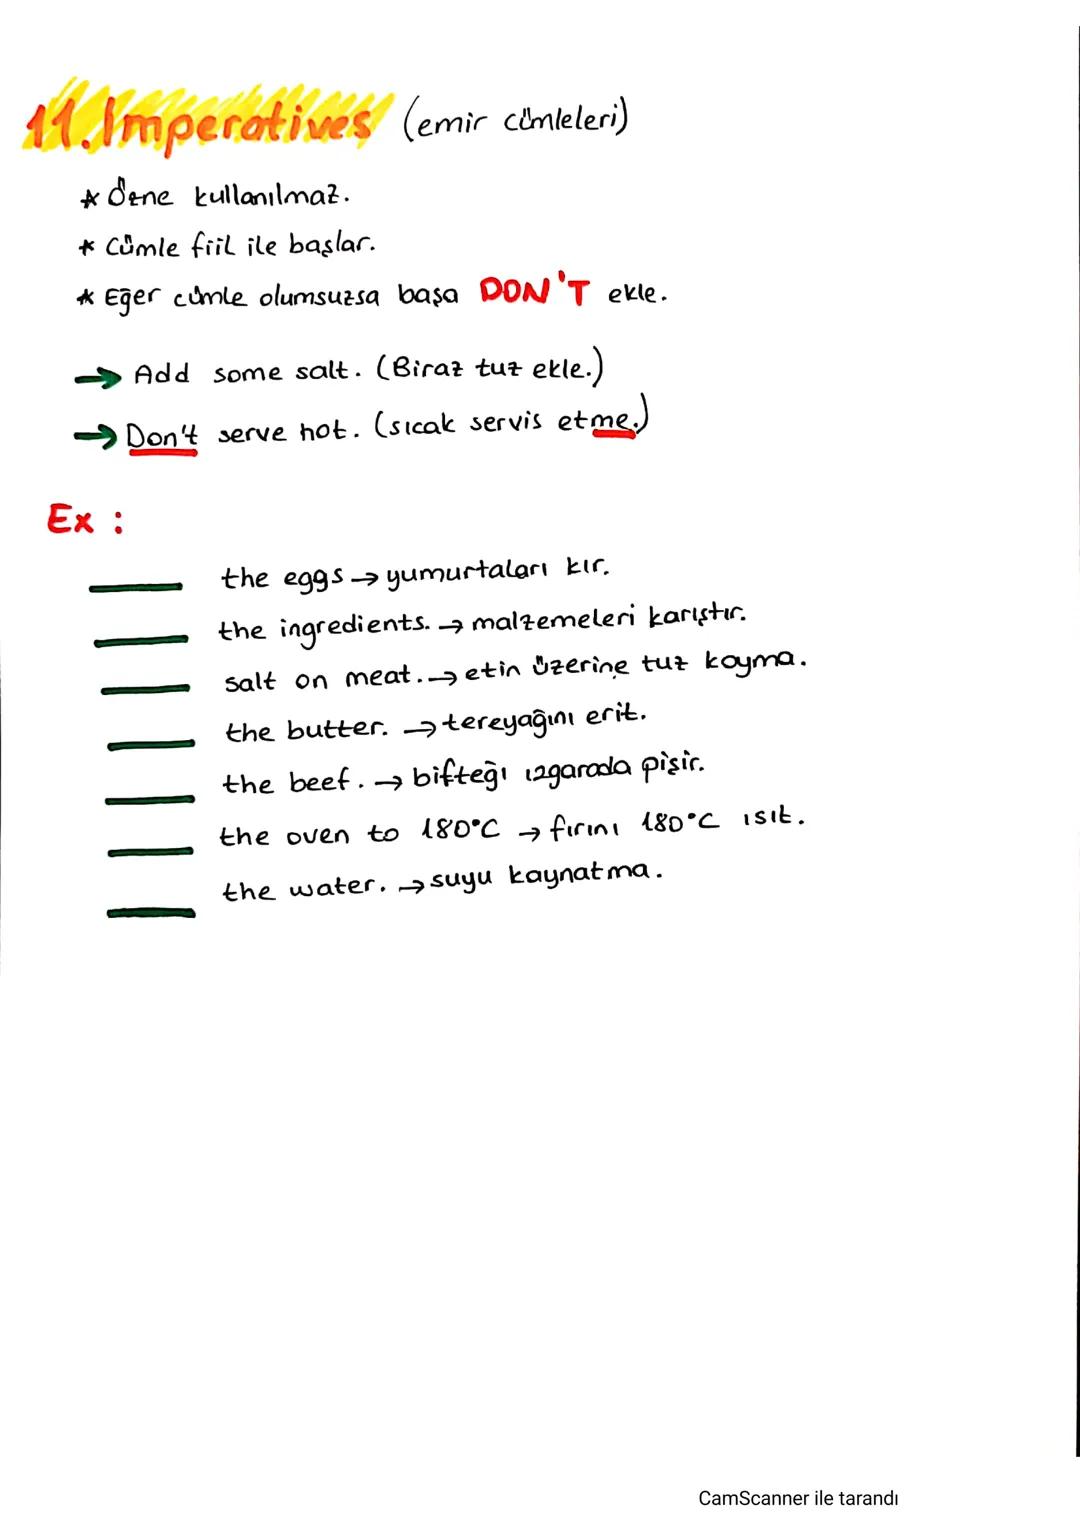 11. Imperatives (emir cümleleri)
* Özne kullanılmaz.
* Cümle fiil ile başlar.
* Eğer cümle olumsuzsa başa DON'T ekle.
→ Add some salt. (Biraz tuz ekle.)
→ Don't serve hot. (sıcak servis etme.)
Ex :
____ the eggs → yumurtaları kır.
____ the ingredients. → malzemeleri karıştır.
____ salt on meat. → etin üzerine tuz koyma.
____ the butter. → tereyağını erit.
____ the beef. → bifteği ızgarada pişir.
____ the oven to 180°C → fırını 180°C ısıt.
____ the water. → suyu kaynatma.
CamScanner ile tarandı